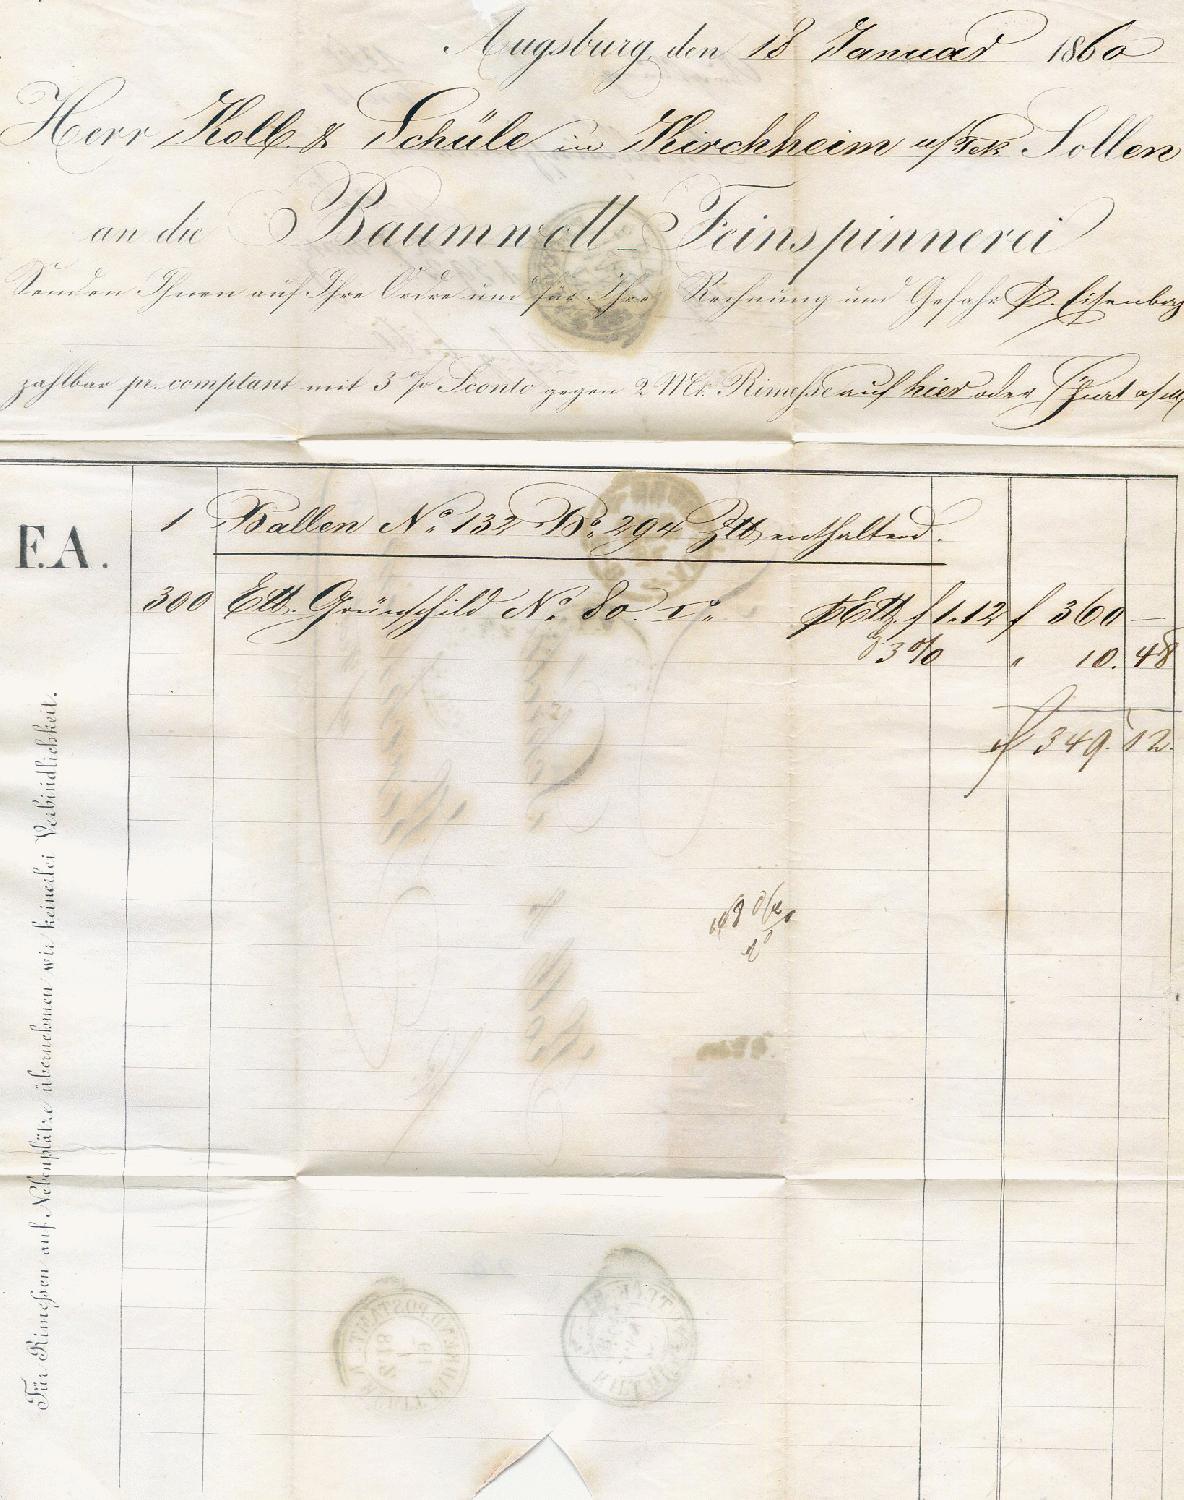 Augsburg, den 18 Januar 1860
Herr Kolb & Schüle in Kirchheim u/Tek Sollen
an die Baumwoll Feinspinnerei
Senden Ihnen auf Ihre Ordre und für Ihre Rechnung und Gefahr p. Eisenbag
zahlbar pr. comptant mit 3 % Sconto gegen 2 Mt. Rimesse auf hier oder Ffurt a/M
F.A.
1 Ballen No. 132 Bo. 294 Zll enthaltend.
300 Ell. Grünschild No. 80. p Ell f 1.12 f 360 —
3 % " 10. 48
f 349. 12.
Für Rimeßen auf Nebenplätze übernehmen wir keinerlei Verbindlichkeit.